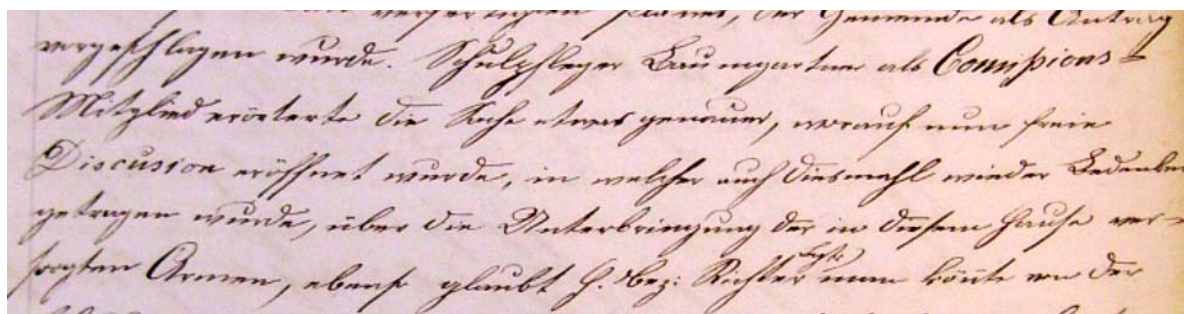 verfertigten Planes, der Gemeinde als Antrag
vorgeschlagen wurde. Schulpfleger Baumgartner als Comißions-
Mitglied erörterte die Sache etwas genauer, worauf nun freie
Discusion eröffnet wurde, in welcher auch diesmahl wieder Bedenken
getragen wurde, über die Unterbringung der in diesem Hause ver-
sorgten Armen, ebenso glaubt H. Bez: Richter man könnte von der